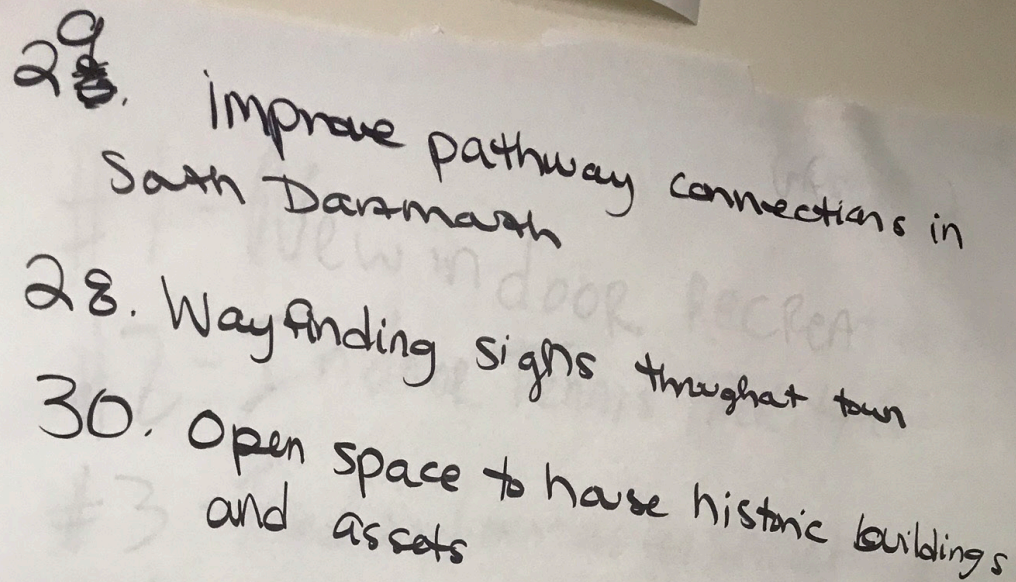 29. improve pathway connections in
South Dartmouth
28. Wayfinding signs throughout town
30. Open space to house historic buildings
and assets
New indoor Recrea
#3